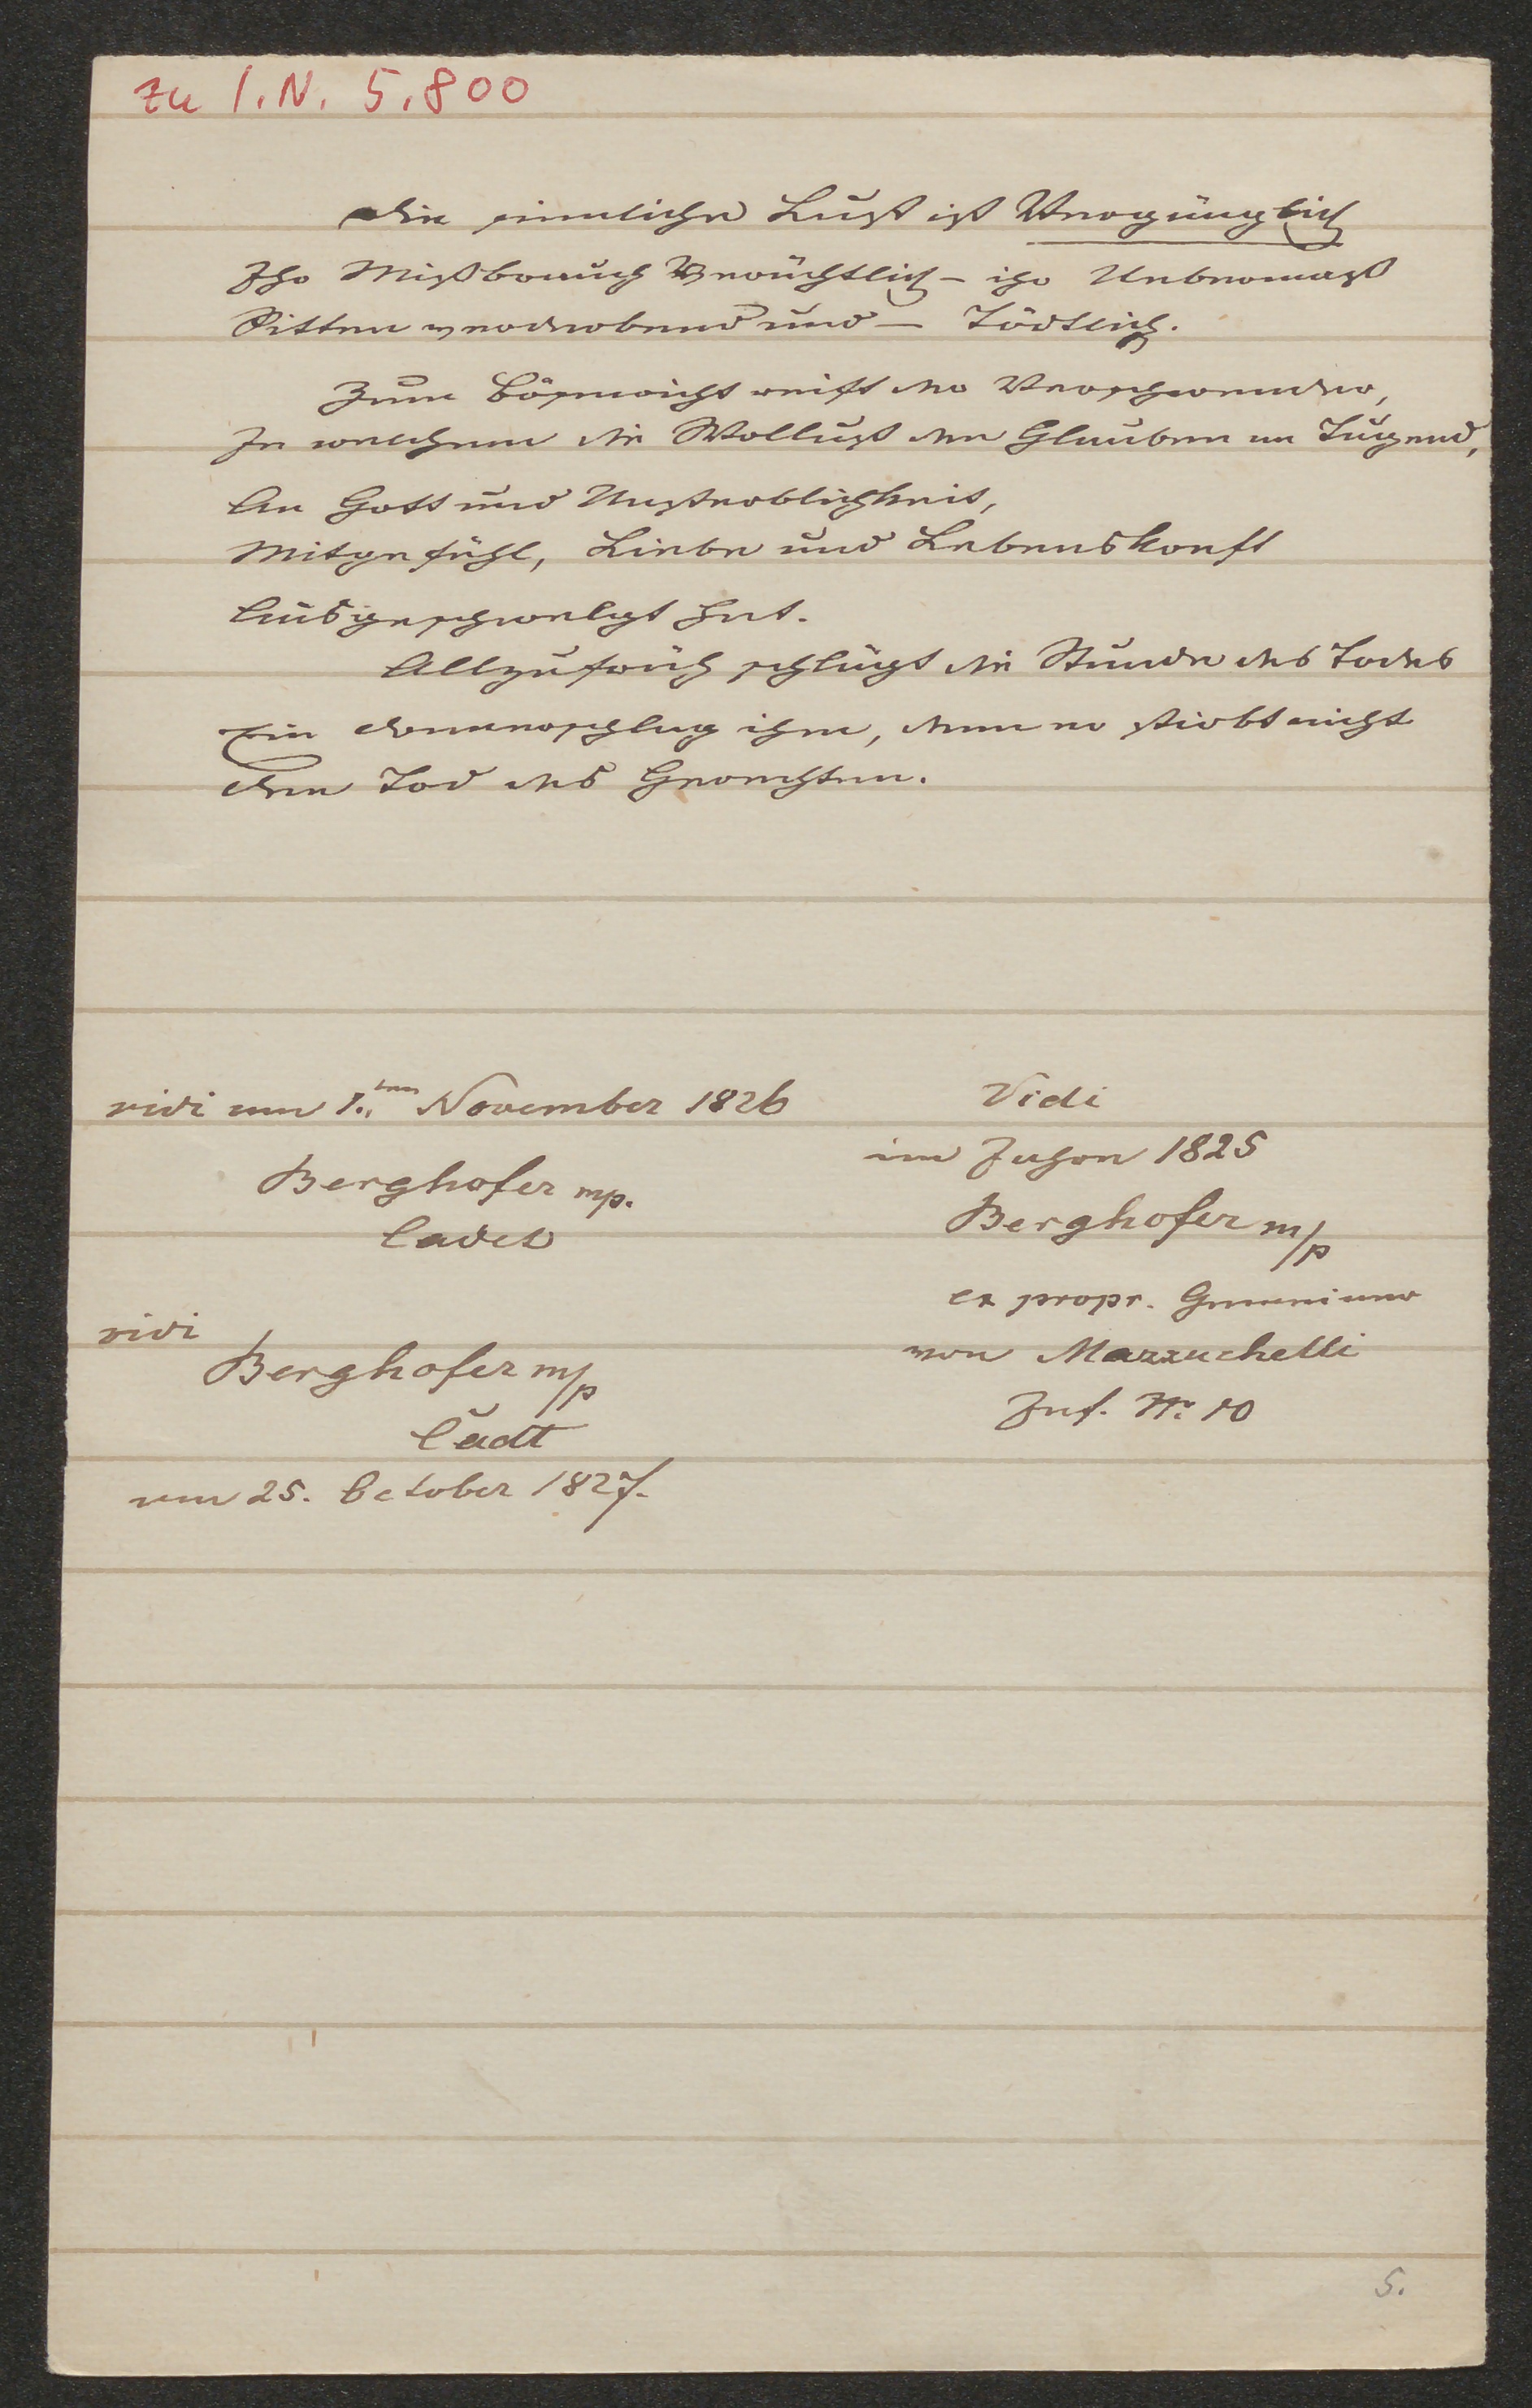 zu I.N. 5.800
Die sinnliche Lust ist Vergänglich
Ihr Mißbrauch Verächtlich – ihr Uebermaß
Sitten verderbend und – Tödtlich.
Zum Bösewicht reift der Verschwender,
In welchem die Wollust den Glauben an Tugend,
An Gott und Unsterblichkeit,
Mitgefühl, Liebe und Lebenskraft
Ausgeschwelgt hat.
Allzufrüh schlägt die Stunde des Todes
Ein Donnerschlag ihm, denn er stirbt nicht
Den Tod des Gerechten.
vidi am 1.ten November 1826
Berghofer mp.
Cadet
vidi
Berghofer m/p
Cadt
am 25. October 1827.
Vidi
im Jahre 1825
Berghofer m/p
ex propr. Gemeiner
von Mazzuchelli
Inf. Nr. 10
5.